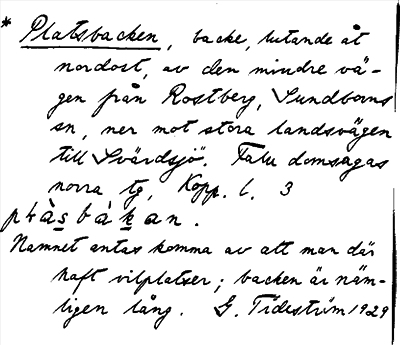 * Platsbacken, backe, lutande åt
nordost, av den mindre vä-
gen från Rostberg, Sundborns
sn, ner mot stora landsvägen
till Svärdsjö. Falu domsagas
norra tg, Kopp. l. 3
plàsbàkan.
Namnet antas komma av att man där
haft vilplatser; backen är näm-
ligen lång. G. Tideström 1929